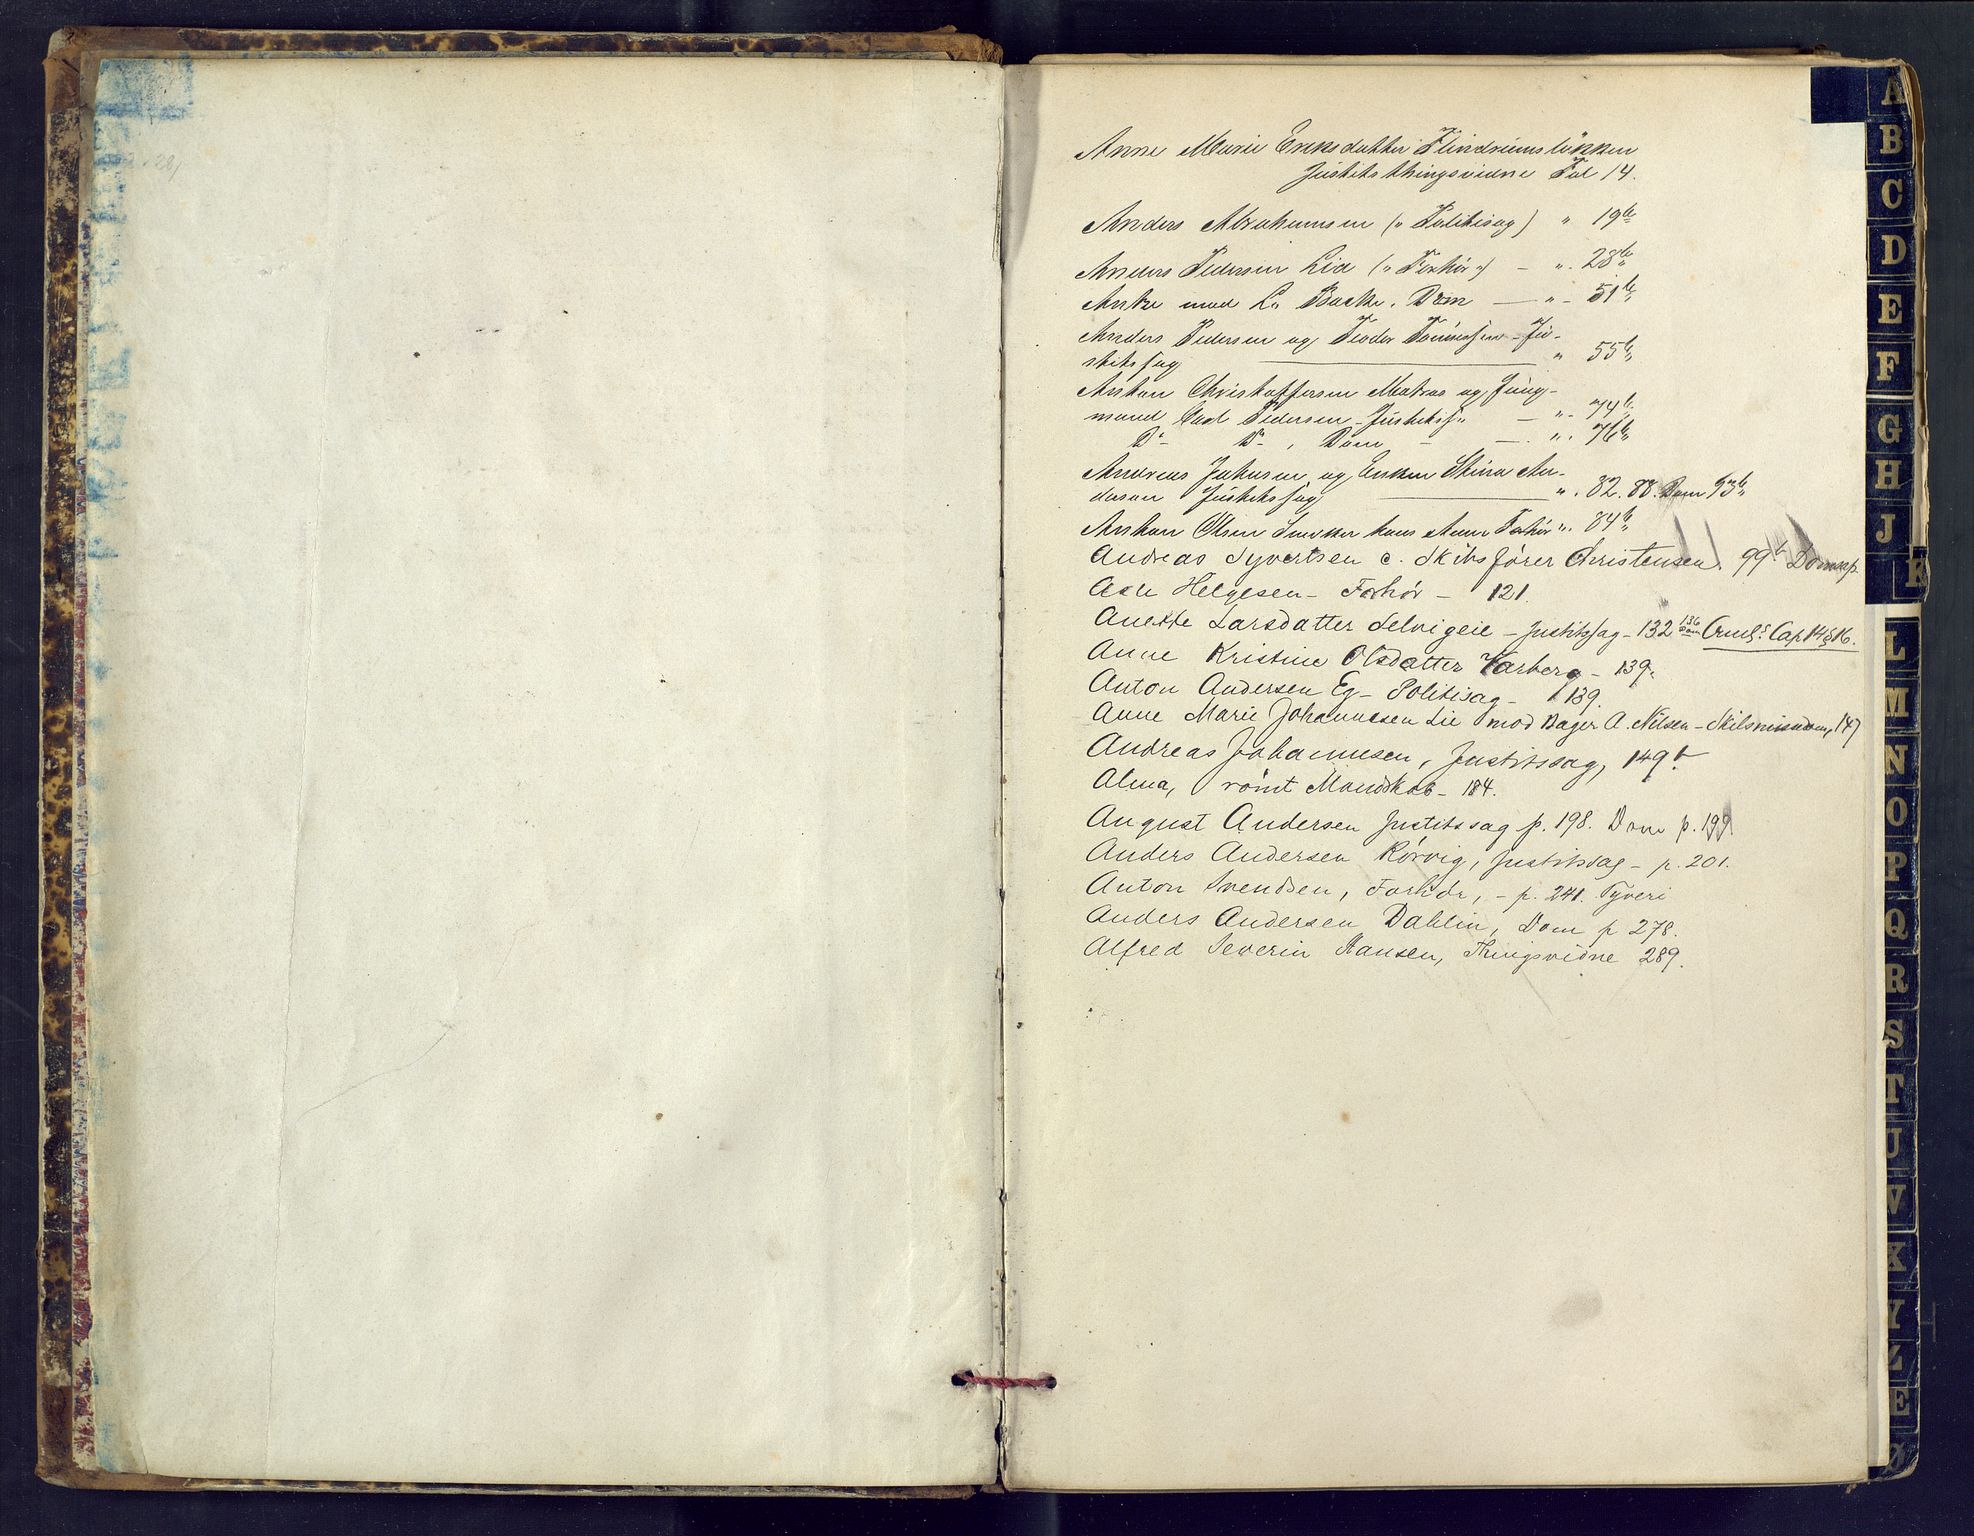 Anne Marie Eriksdatter Flindrumsløkken
Justitsthingsvidne Fol 14.
Anders Abrahamsen („ Politisag) „ 19b
Anders Pedersen Lia („ Forhør „) — „. 28b
Antze mod L. Backe. Dom — „ - 51b
Anders Pedersen og Teodor Tønnesen - Ju-
stitssag — „ 55b
Anton Christoffersen Matros og Jung-
mand Carl Pedersen - Justitss. — „. 74b
Do Do, Dom — „. 76b
Andreas Johnsen og Enken Stina An-
derson Justitssag — „. 82. 88. Dom 93b
Anton Olsen Snekker hans Forhør „. 84b
Andreas Syvertsen c. Skibsfører Christensen. 99b Domsap.
Asle Helgesen - Forhør - 121.
Anette Larsdatter Selvigeie - Justitssag - 132 136 Dom Cap 14 § 16.
Anne Kristine Olsdatter Varberg - 139.
Anton Andersen Eg - Politisag - 139.
Anne Marie Johannesen Lie mod Bager A. Nilsen - Skilsmissedom, 147
Andreas Johannesen, Justitssag, 149b
Alma, rømt Mandskab - 184.
August Andersen Justitssag p. 198. Dom p. 199
Anders Andersen Rørvig, Justitssag - p. 201.
Anton Svendsen, Forhør, - p. 241. Tyveri
Anders Andersen Dahlin, Dom p 278.
Alfred Severin Hansen, Thingsvidne 289.
A
B
C
D
E
F
G
H
J
K
L
M
N
O
P
Q
R
S
T
U
V
X
Y
Z
Æ
Ø